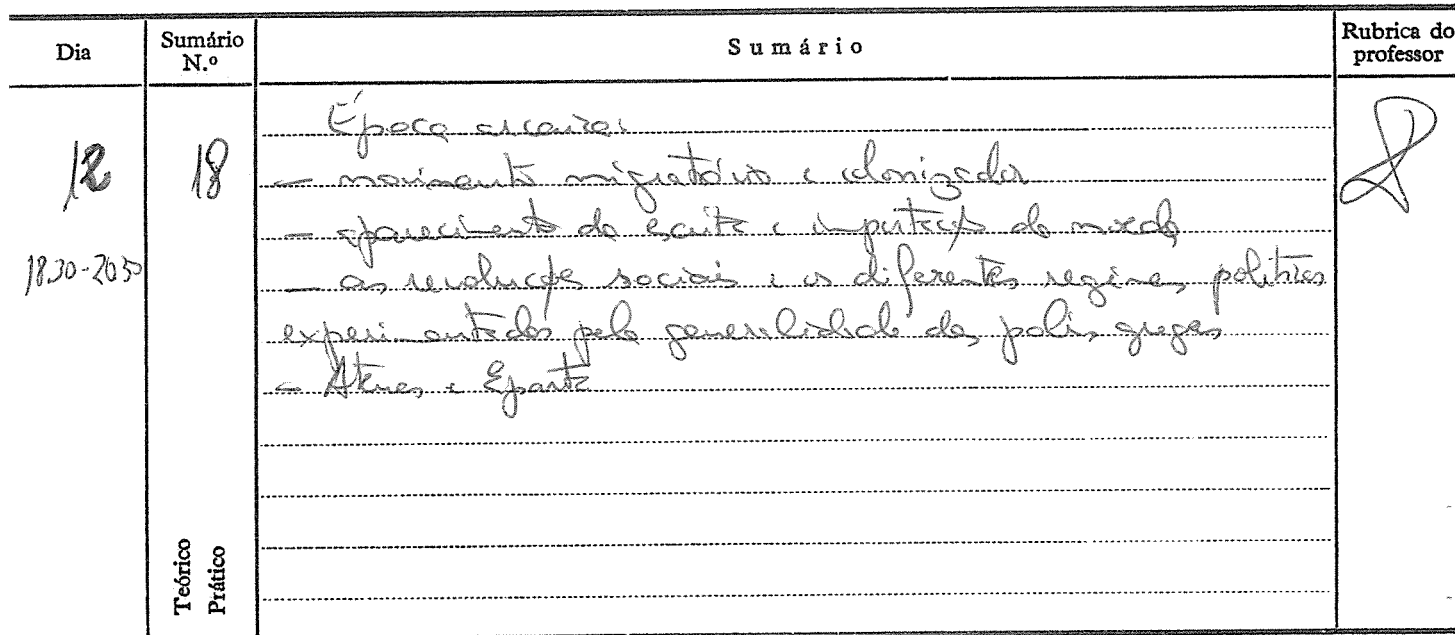 Dia
Sumário N.º
Sumário
Rubrica do professor
12
18
18.30-20.30
Época arcaica:
- movimento migratório e colonizador
- aparecimento da escrita e importação da moeda
- as revoluções sociais e os diferentes regimes políticos
experimentados pela generalidade das polis gregas
- Atenas e Esparta
Teórico
Prático